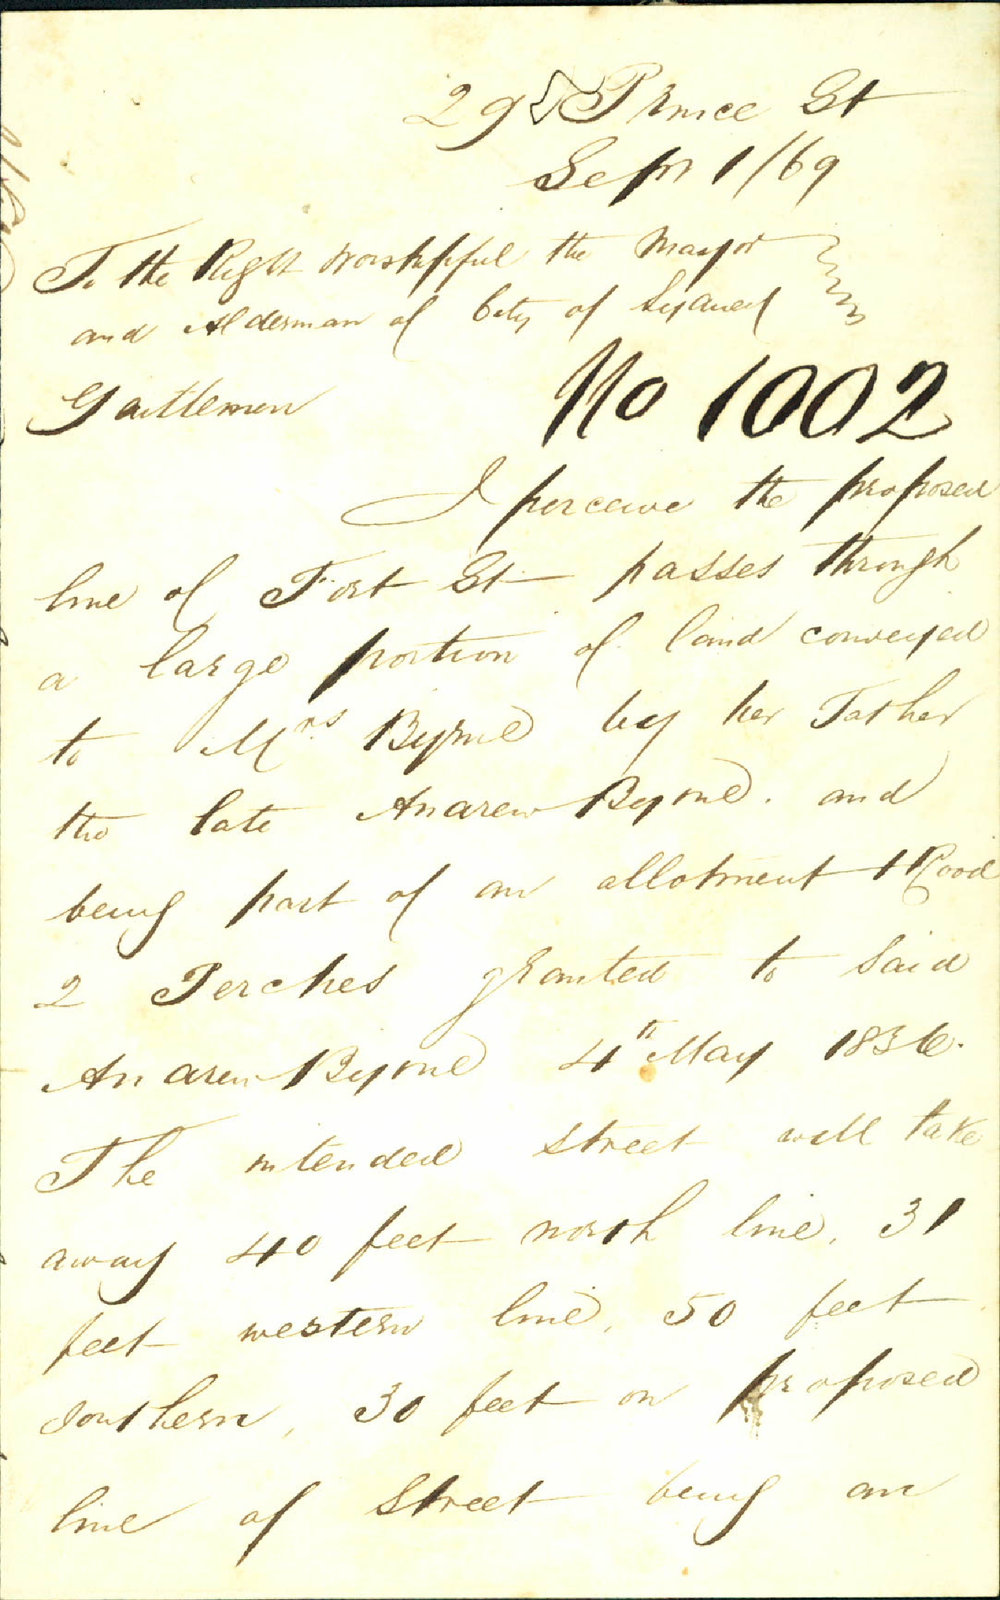 29 Prince St
Sepr 1/69
To the Right Worshipful the Mayor
and Alderman of City of Sydney
Gentlemen
No 1002
I perceive the proposed
line of Fort St passes through
a large portion of land conveyed
to Mrs Byrne by her Father
the late Andrew Byrne. and
being part of an allotment 1 Rood
2 Perches granted to said
Andrew Byrne 4th May 1836.
The intended street will take
away 40 feet north line, 31
feet western line, 50 feet
southern, 30 feet on proposed
line of Street being an